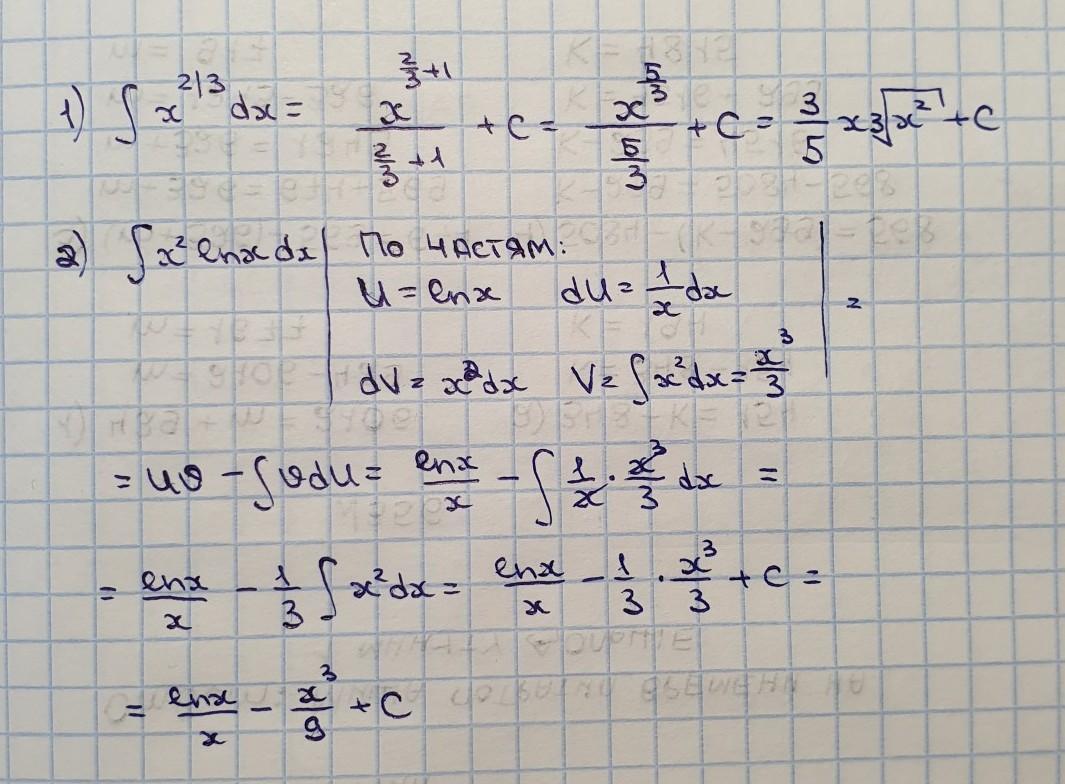 1) ∫ x^{2/3} dx = \frac{x^{\frac{2}{3}+1}}{\frac{2}{3}+1} + C = \frac{x^{\frac{5}{3}}}{\frac{5}{3}} + C = \frac{3}{5} x \sqrt[3]{x^2} + C
2) ∫ x² lnx dx | По частям:
U = lnx dU = \frac{1}{x} dx | =
dV = x² dx V = ∫ x² dx = \frac{x^3}{3}
= UV - ∫ V dU = \frac{lnx}{x} - ∫ \frac{1}{x} · \frac{x^3}{3} dx =
= \frac{lnx}{x} - \frac{1}{3} ∫ x² dx = \frac{lnx}{x} - \frac{1}{3} · \frac{x^3}{3} + C =
= \frac{lnx}{x} - \frac{x^3}{9} + C